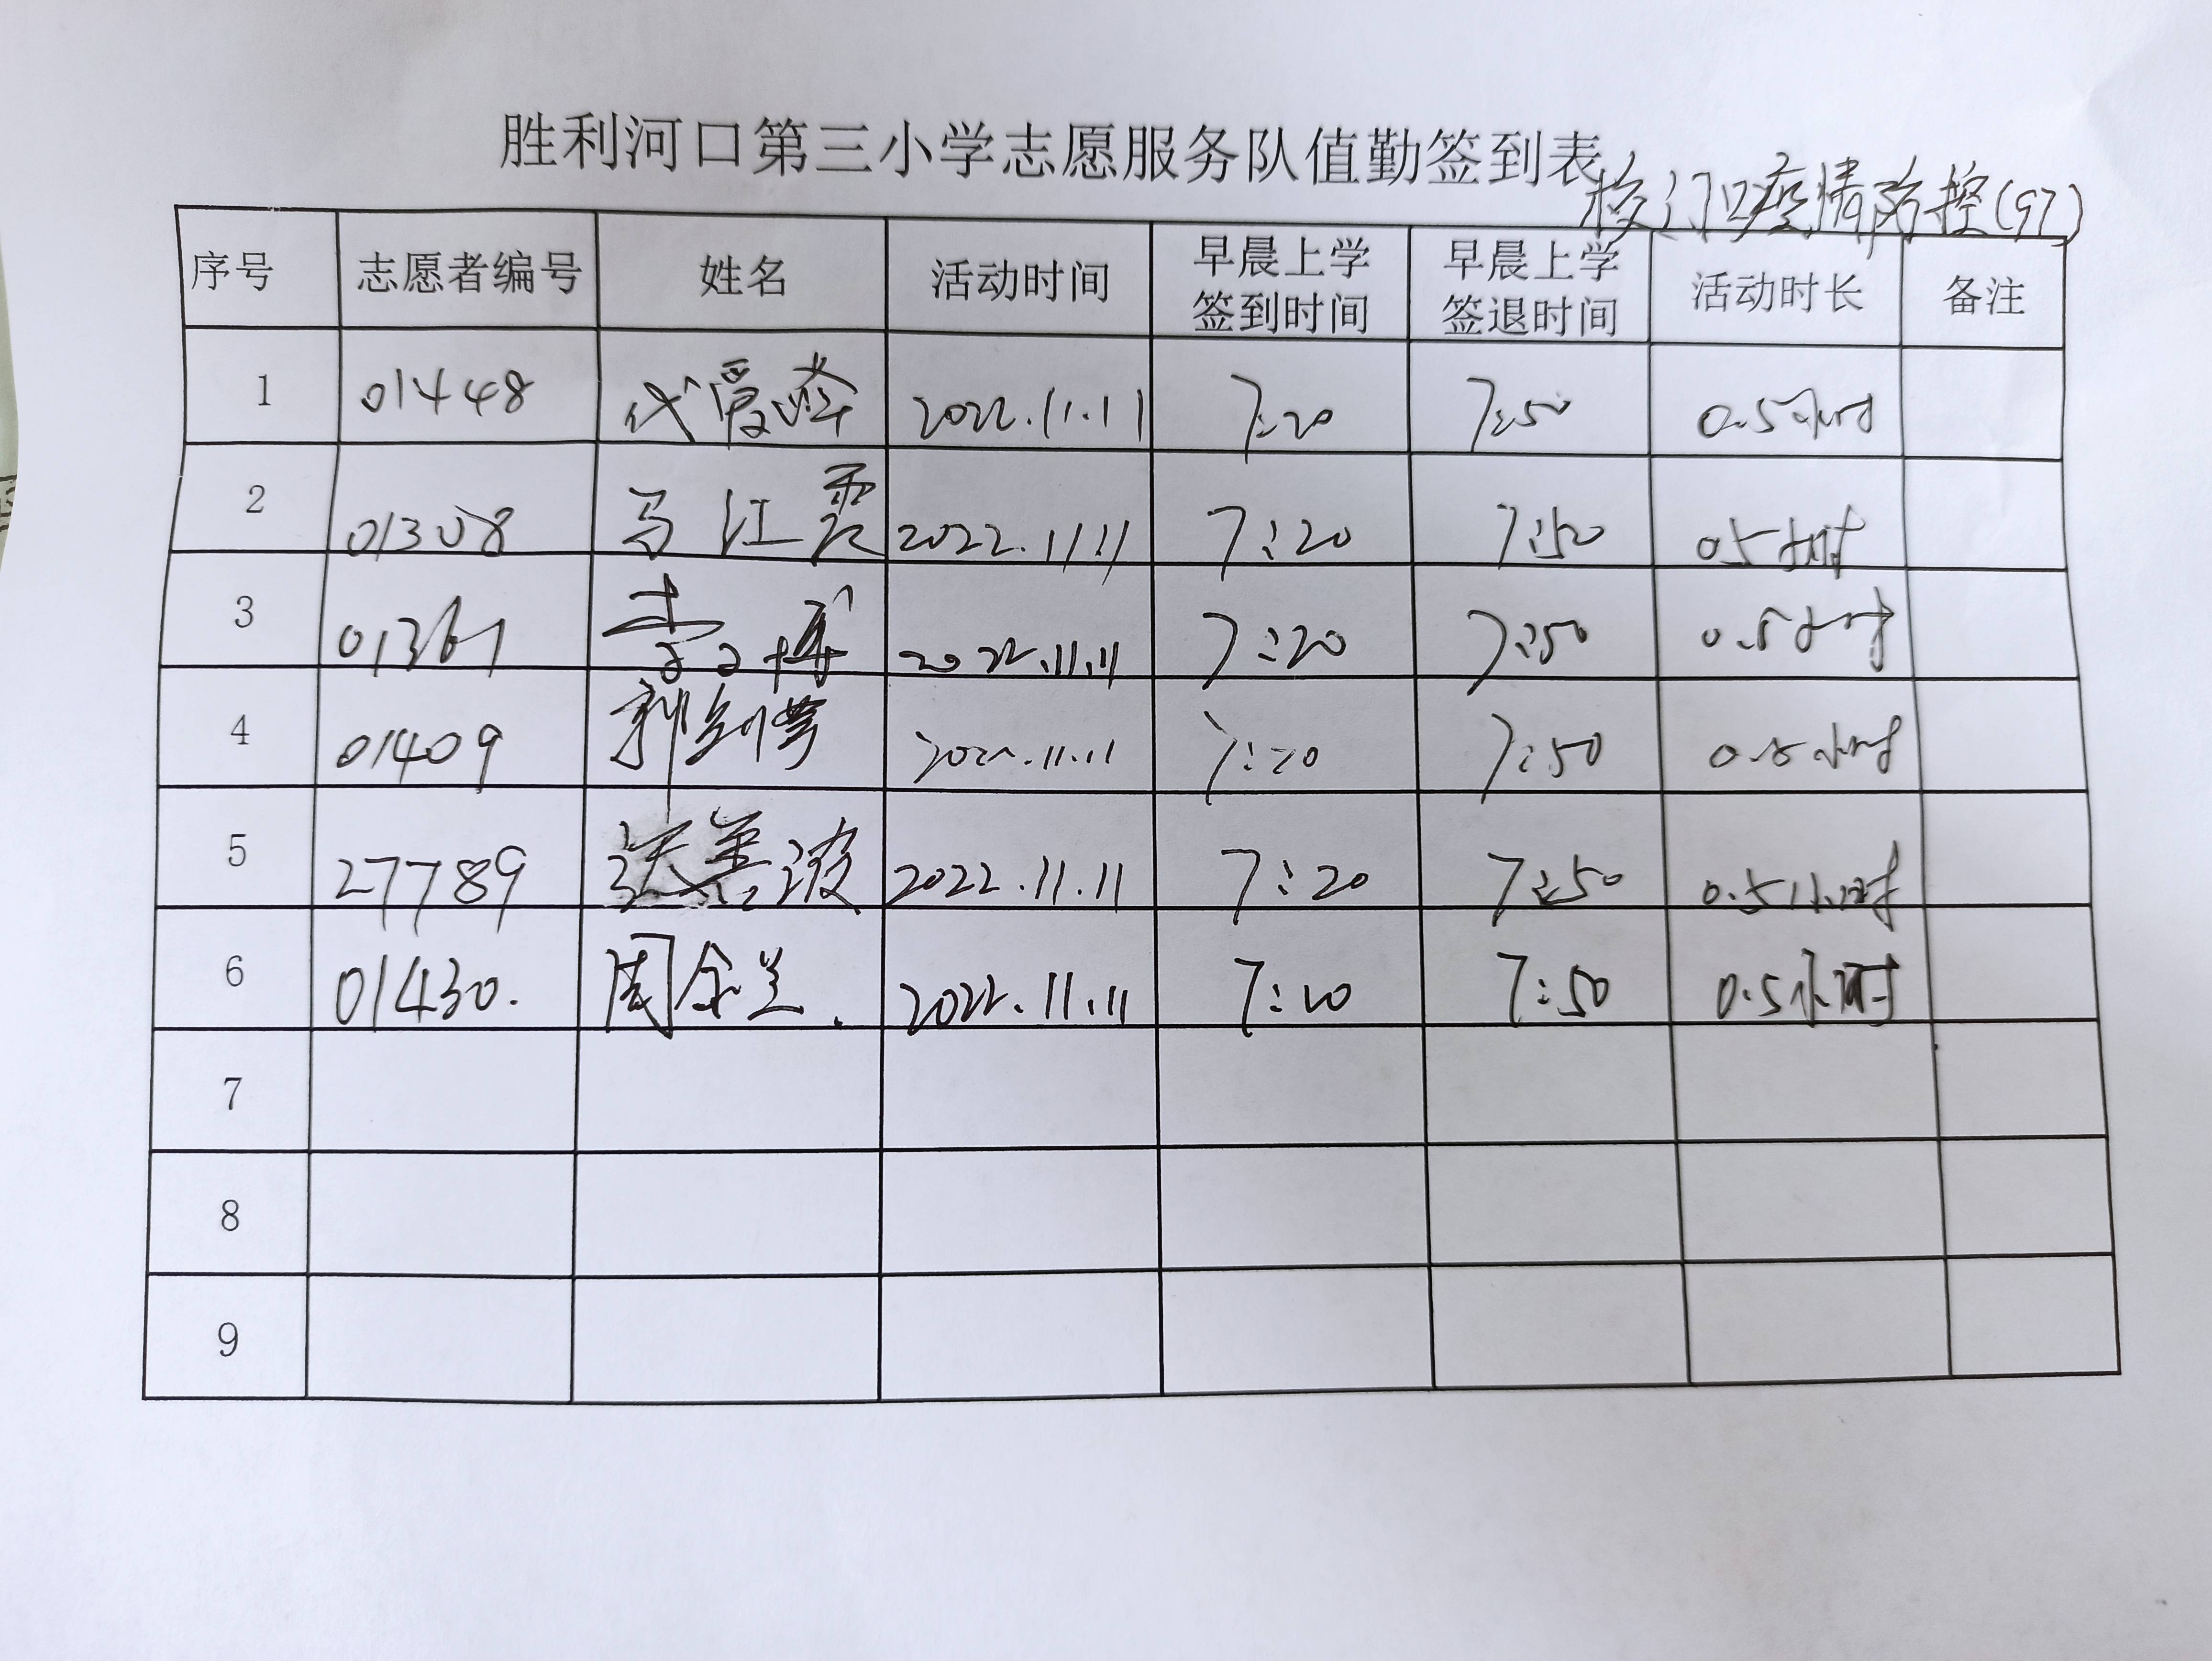 胜利河口第三小学志愿服务队值勤签到表
校门口疫情防控(97)
序号 志愿者编号 姓名 活动时间 早晨上学签到时间 早晨上学签退时间 活动时长 备注
1 01448 代爱华 2022.11.11 7:20 7:50 0.5小时
2 01308 马江霞 2022.11.11 7:20 7:50 0.5小时
3 01361 李博 2022.11.11 7:20 7:50 0.5小时
4 01409 郭剑 2022.11.11 7:20 7:50 0.5小时
5 27789 波 2022.11.11 7:20 7:50 0.5小时
6 01430. 周金兰. 2022.11.11 7:20 7:50 0.5小时
7
8
9